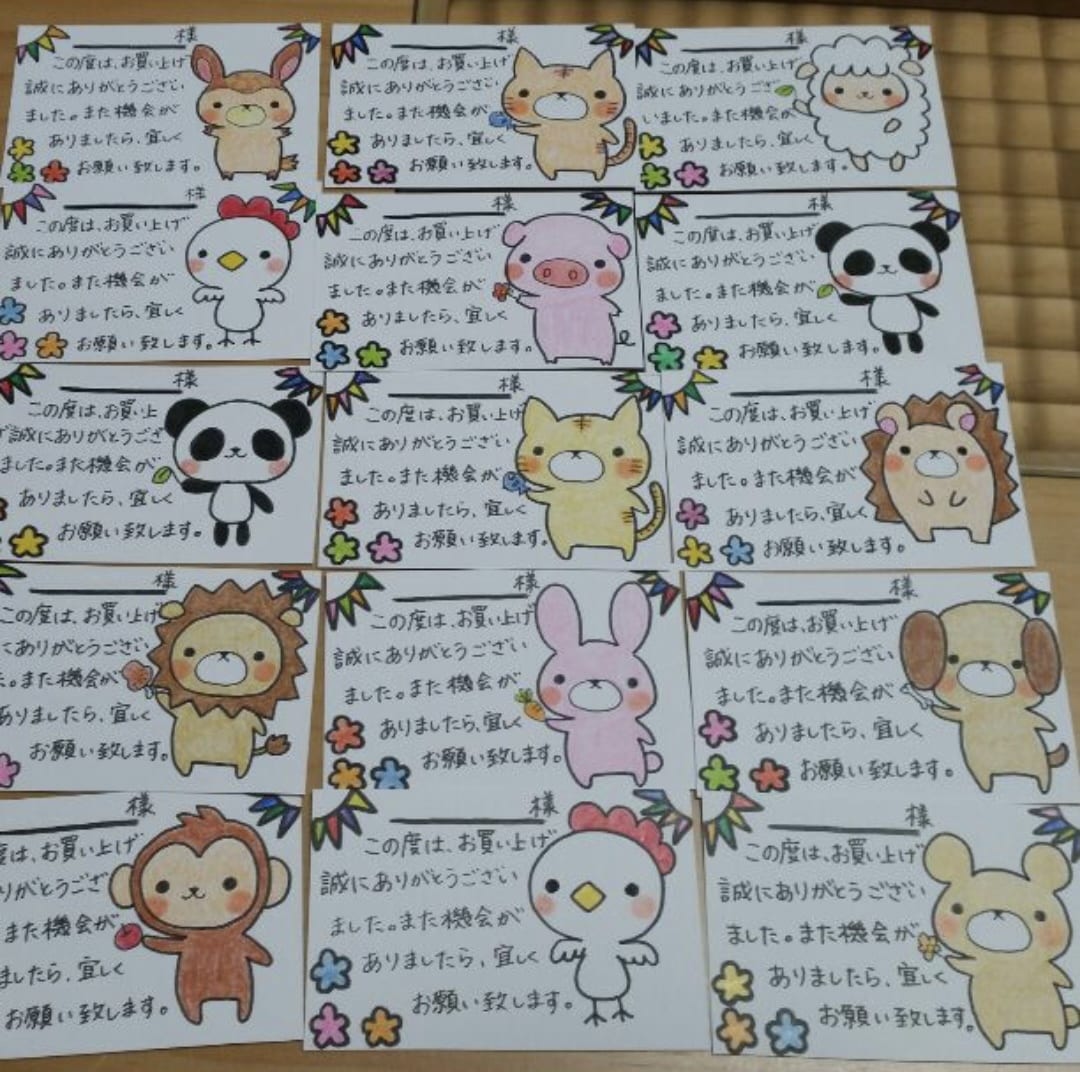 様
この度は、お買い上げ
誠にありがとうござい
ました。また機会が
ありましたら、宜しく
お願い致します。
様
この度は、お買い上げ
誠にありがとうござい
ました。また機会が
ありましたら、宜しく
お願い致します。
様
この度は、お買い上げ
誠にありがとうござ
いました。また機会が
ありましたら、宜しく
お願い致します。
様
この度は、お買い上げ
誠にありがとうござい
ました。また機会が
ありましたら、宜しく
お願い致します。
様
この度は、お買い上げ
誠にありがとうござい
ました。また機会が
ありましたら、宜しく
お願い致します。
様
この度は、お買い上げ
誠にありがとうござい
ました。また機会が
ありましたら、宜しく
お願い致します。
様
この度は、お買い上
げ誠にありがとうござ
ました。また機会が
ありましたら、宜しく
お願い致します。
様
この度は、お買い上げ
誠にありがとうござい
ました。また機会が
ありましたら、宜しく
お願い致します。
様
この度は、お買い上げ
誠にありがとうござい
ました。また機会が
ありましたら、宜しく
お願い致します。
様
この度は、お買い上げ
にありがとうござい
た。また機会が
ありましたら、宜しく
お願い致します。
様
この度は、お買い上げ
誠にありがとうござい
ました。また機会が
ありましたら、宜しく
お願い致します。
様
この度は、お買い上げ
誠にありがとうござい
ました。また機会が
ありましたら、宜しく
お願い致します。
様
度は、お買い上げ
りがとうござ
また機会が
ましたら、宜しく
お願い致します。
様
この度は、お買い上げ
誠にありがとうござい
ました。また機会が
ありましたら、宜しく
お願い致します。
様
この度は、お買い上げ
誠にありがとうござい
ました。また機会が
ありましたら、宜しく
お願い致します。